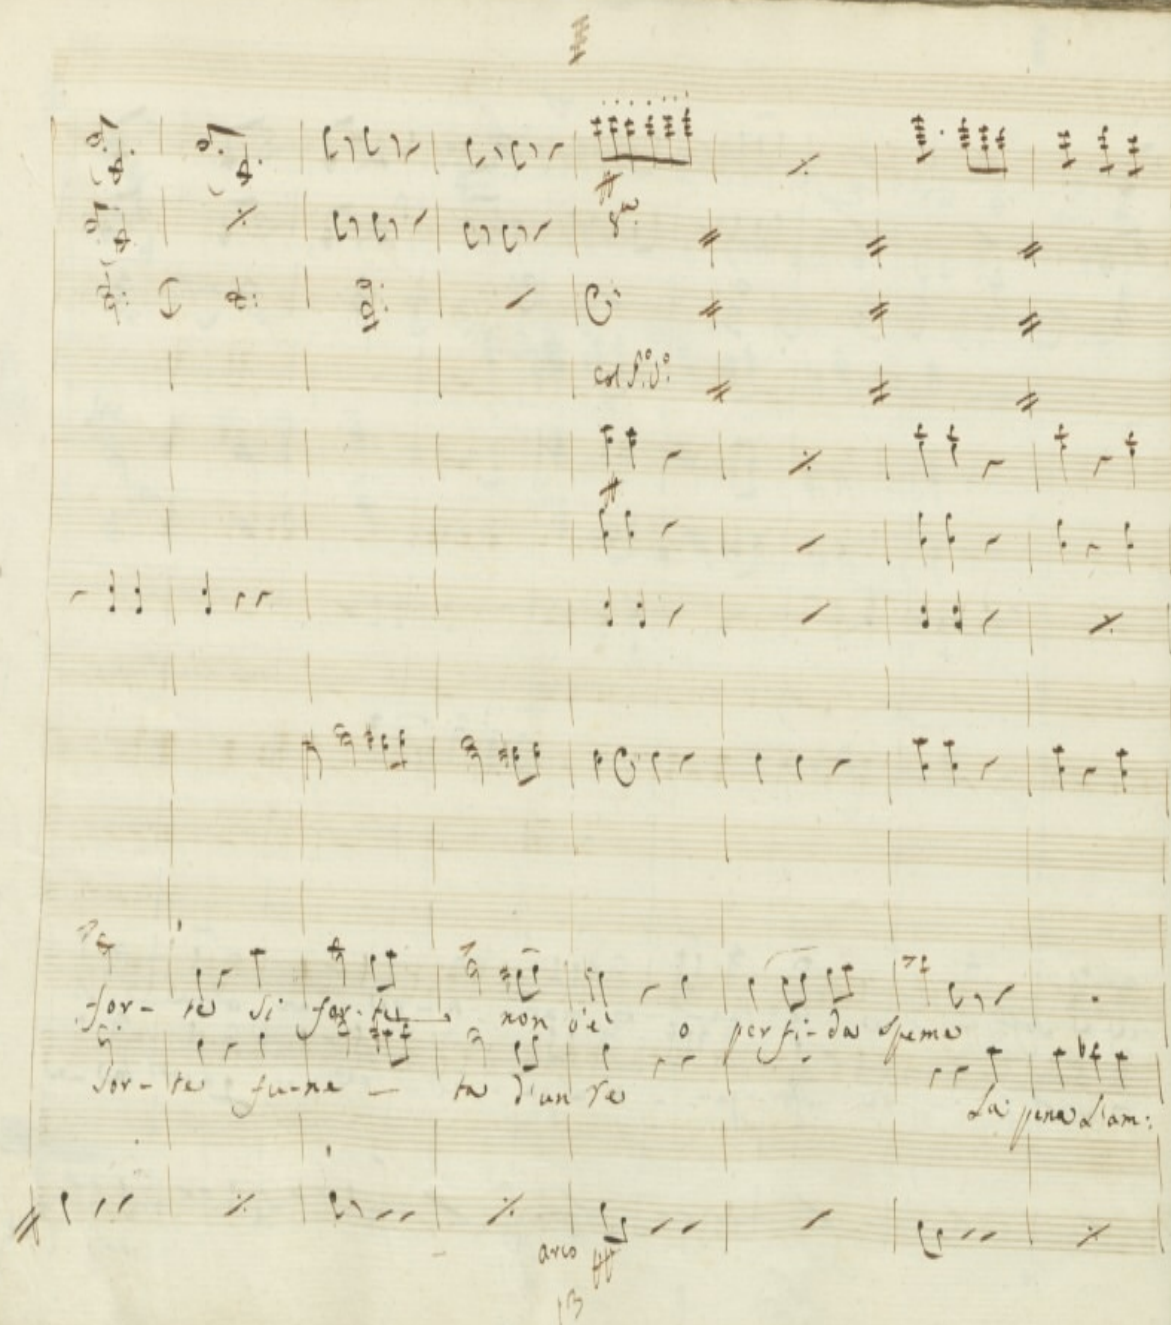 8va
col Po Vo
for- te si for- te non v'è o perfi- da speme
sor- te fu- ne - ta d'un re La pena L'am:
arco ff
13